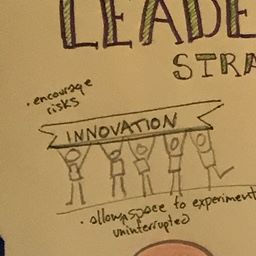 LEADE
STRA
• encourage
risks
INNOVATION
• allow space to experiment
uninterrupted